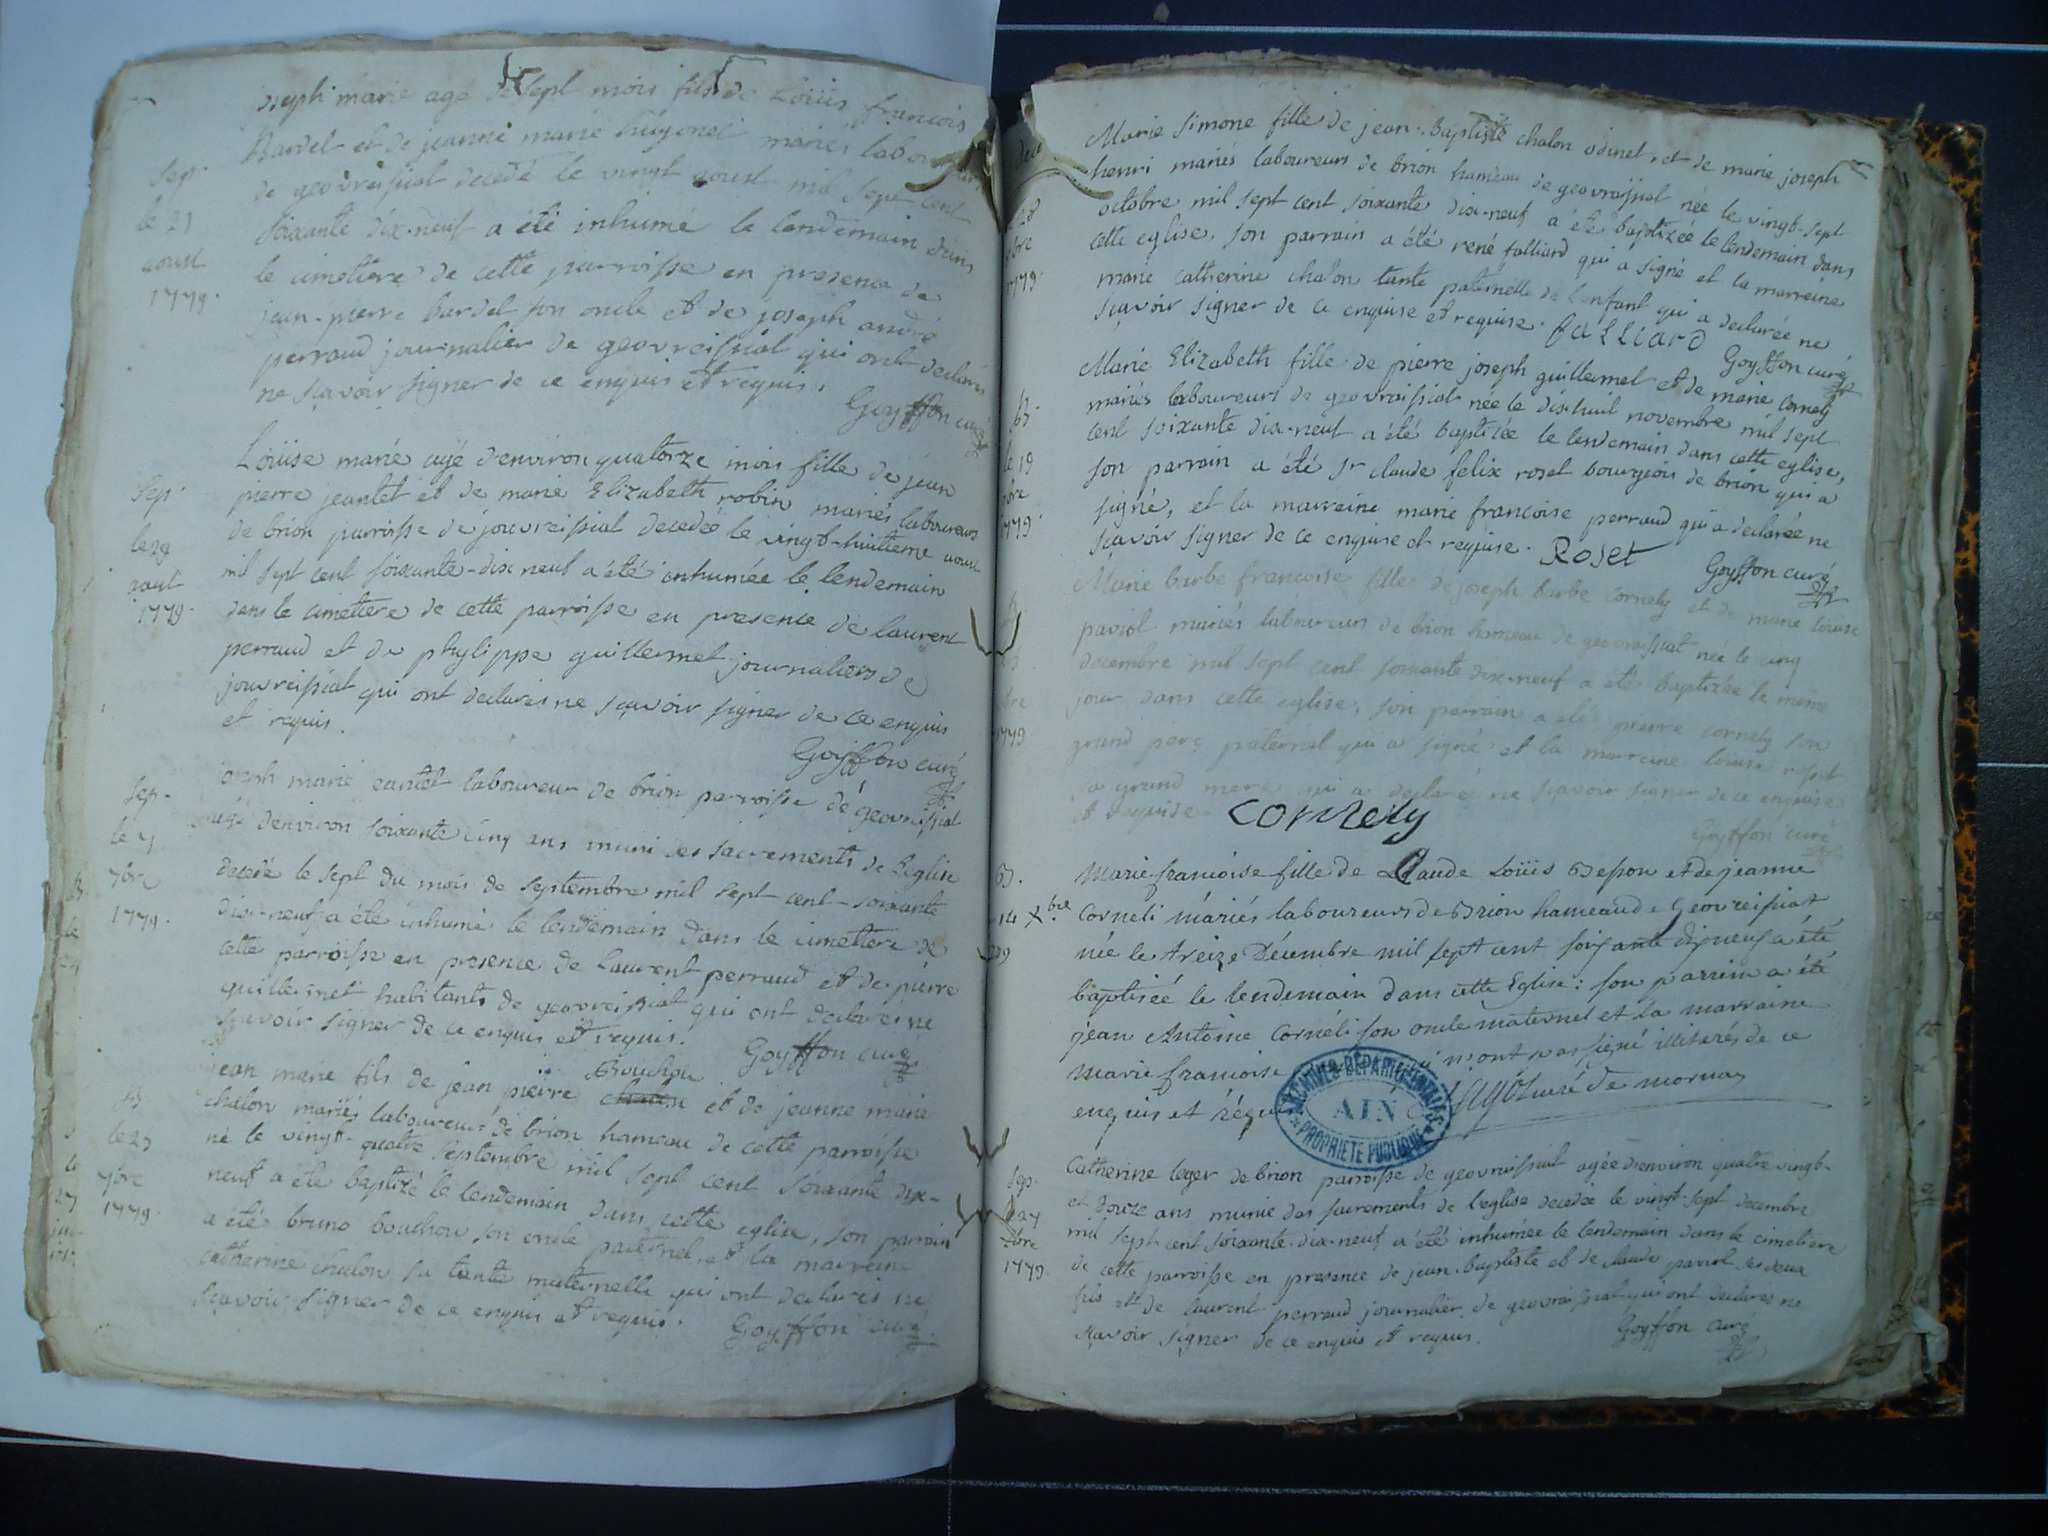 joseph marie agé de sept mois fils de Loüis françois
Bardel et de jeanne marie hugonet mariés laboureurs
de geovreissiat decedé le vingt aoust mil sept cent
soixante dix-neuf a été inhumé le lendemain dans
le cimettere de cette parroisse en presence de
jean-pierre bardel son oncle et de joseph andré
perraud journalier de geovreissiat qui ont declarés
ne sçavoir signer de ce enquis et requis.
Goyffon curé
Sep.
le 21
aoust
1779.
Loüise marie agé d'environ quatorze mois fille de jean
pierre jeantet et de marie Elizabeth robin mariés laboureurs
de brion parroisse de jouvreissiat decedée le vingt-huitieme aoust
mil sept cent soixante-dix neuf a été inhumée le lendemain
dans le cimettere de cette parroisse en presence de laurent
perraud et de phylippe guillermet journaliers de
jouvreissiat qui ont declarés ne sçavoir signer de ce enquis
et requis.
Goyffon curé
Sep.
le 29
aout
1779.
joseph marie jantet laboureur de brion parroisse de geovreissiat
agé d'environ soixante cinq ans muni des sacrements de l'eglise
decedé le sept du mois de septembre mil sept cent-soixante
dix-neuf a été inhumé le lendemain dans le cimettere de
cette parroisse en presence de laurent perraud et de pierre
guillermet habitants de geovreissiat qui ont declarés ne
sçavoir signer de ce enquis et requis.
Goyffon curé
Sep.
le
7bre
1779.
jean marie fils de jean pierre Bouchou et de jeanne marie
chalon mariés laboureurs de brion hameau de cette parroisse
né le vingt-quatre septembre mil sept cent soixante dix-
neuf a été baptizé le lendemain dans cette eglise, son parrain
a été bruno bouchou son oncle paternel, et la marreine
catherine chalon sa tante maternelle qui ont declarés ne
sçavoir signer de ce enquis et requis.
Goyffon curé
le 25
7bre
1779.
Marie Simone fille de jean-Baptiste chalon odinet, et de marie joseph
henri mariés laboureurs de brion hameau de geovraissiat née le vingt-sept
octobre mil sept cent soixante dix-neuf a été baptizée le lendemain dans
cette eglise, son parrain a été rené falliard qui a signé et la marreine
marie catherine chalon tante paternelle de l'enfant qui a declarée ne
sçavoir signer de ce enquise et requise. falliard
Goyffon curé
le 28
8bre
1779.
Marie Elizabeth fille de pierre joseph guillermet et de marie Cornely
mariés laboureurs de geovraissiat née le dix-huit novembre mil sept
cent soixante dix-neuf a été baptizée le lendemain dans cette eglise,
son parrain a été sr claude felix roset bourgeois de brion qui a
signé, et la marreine marie francoise perraud qui a declarée ne
sçavoir signer de ce enquise et requise. Roset
Goyffon curé
B.
le 19
9bre
1779.
Marie barbe francoise fille de joseph barbe Cornely et de marie loüise
paviol mariés laboureurs de brion hameau de geovreissiat née le cinq
decembre mil sept cent soixante dix-neuf a été baptizée le même
jour dans cette eglise, son parrain a été pierre cornely son
grand pere paternel qui a signé et la marreine loüise roset
sa grand mere qui a declarée ne sçavoir signer de ce enquise
et requise. CORNELY
Goyffon curé
1779
Marie francoise fille de Claude Loüis Besson et de jeanne
Corneli mariés laboureurs de Brion hameau de Geovreissiat
née le treize Décembre mil sept cent soixante dix neuf a été
baptiseé le lendemain dans cette Eglise: son parrein a été
jean Antoine Cornéli son oncle maternel et la marraine
marie francoise qui n'ont pas signé illiterés de ce
enquis et réquis curé de mornay
B.
14 Xbre
79
ARCHIVES DÉPARTEMENTALES
AIN
PROPRIÉTÉ PUBLIQUE
Catherine leger de brion parroisse de geovreissiat agée d'environ quatre vingt-
et douze ans munie des sacrements de l'eglise decedée le vingt-sept decembre
mil sept cent soixante-dix-neuf a été inhumée le lendemain dans le cimetiere
de cette parroisse en presence de jean-baptiste et de claude paviol ses deux
fils et de laurent perraud journalier de geovraissiat qui ont declarés ne
sçavoir signer de ce enquis et requis.
Goyffon curé
Sep.
le 27
Xbre
1779